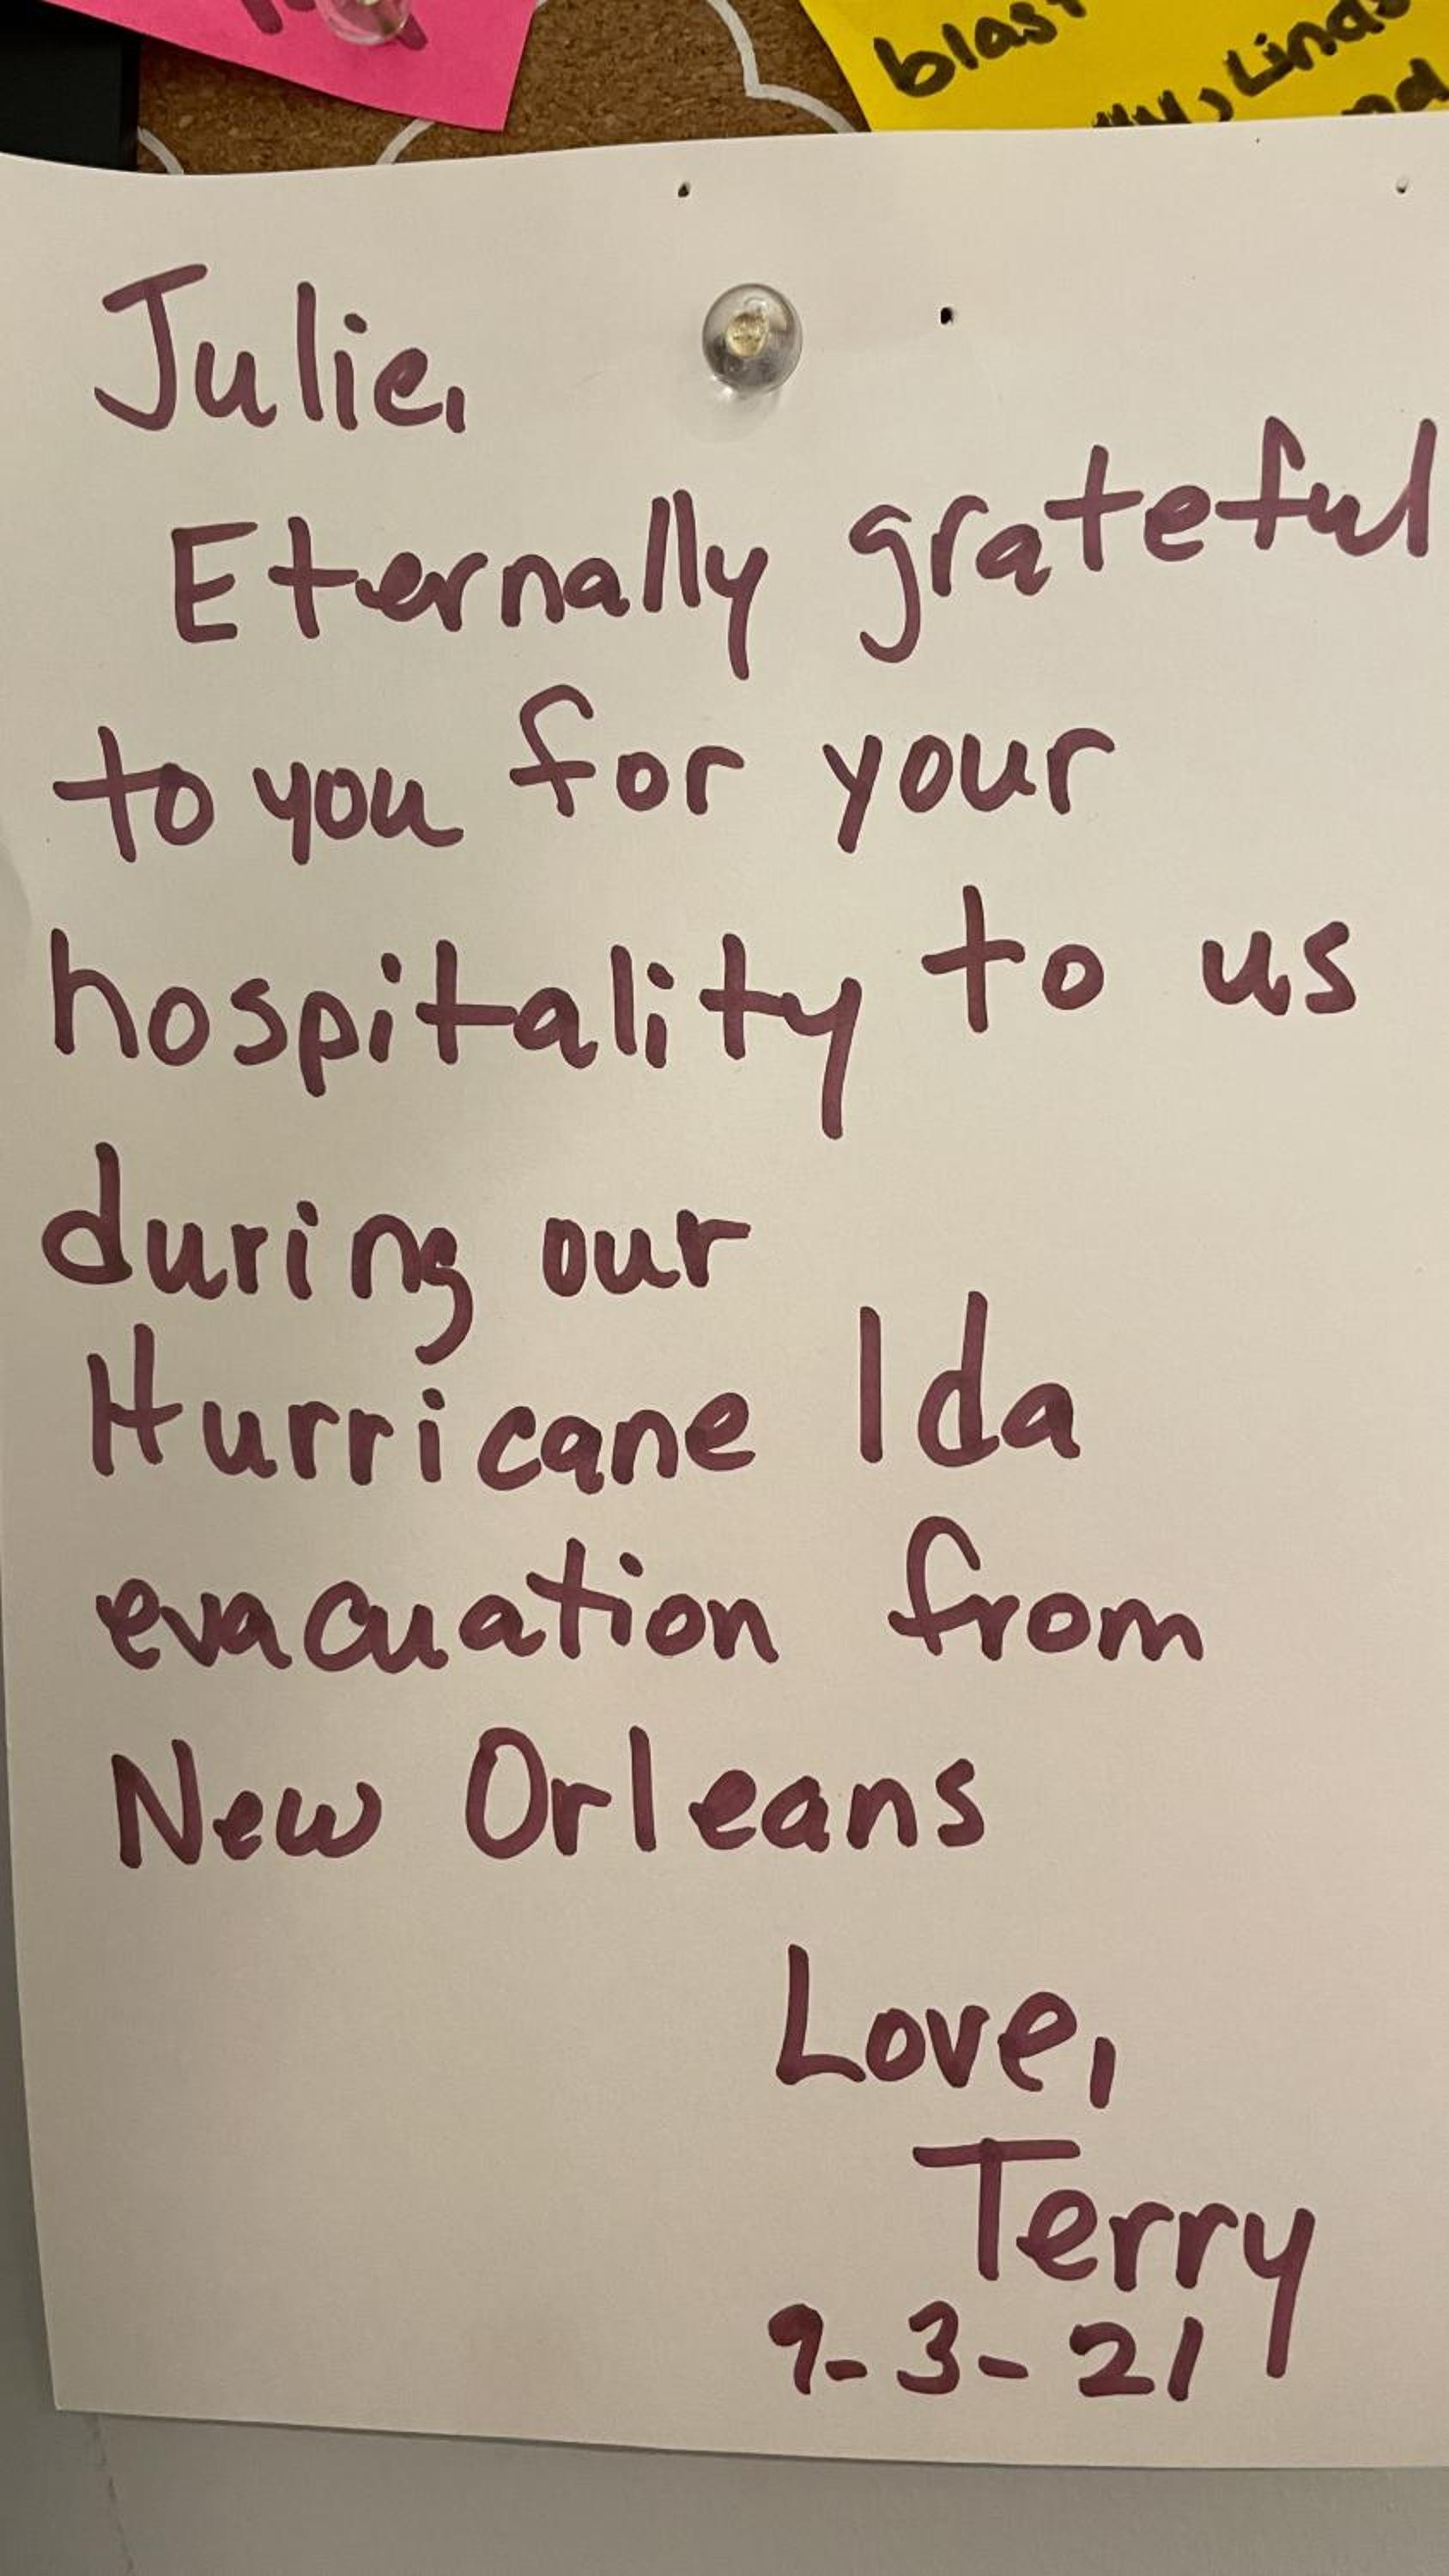 blast
Julie,
Eternally grateful
to you for your
hospitality to us
during our
Hurricane Ida
evacuation from
New Orleans
Love,
Terry
9-3-21